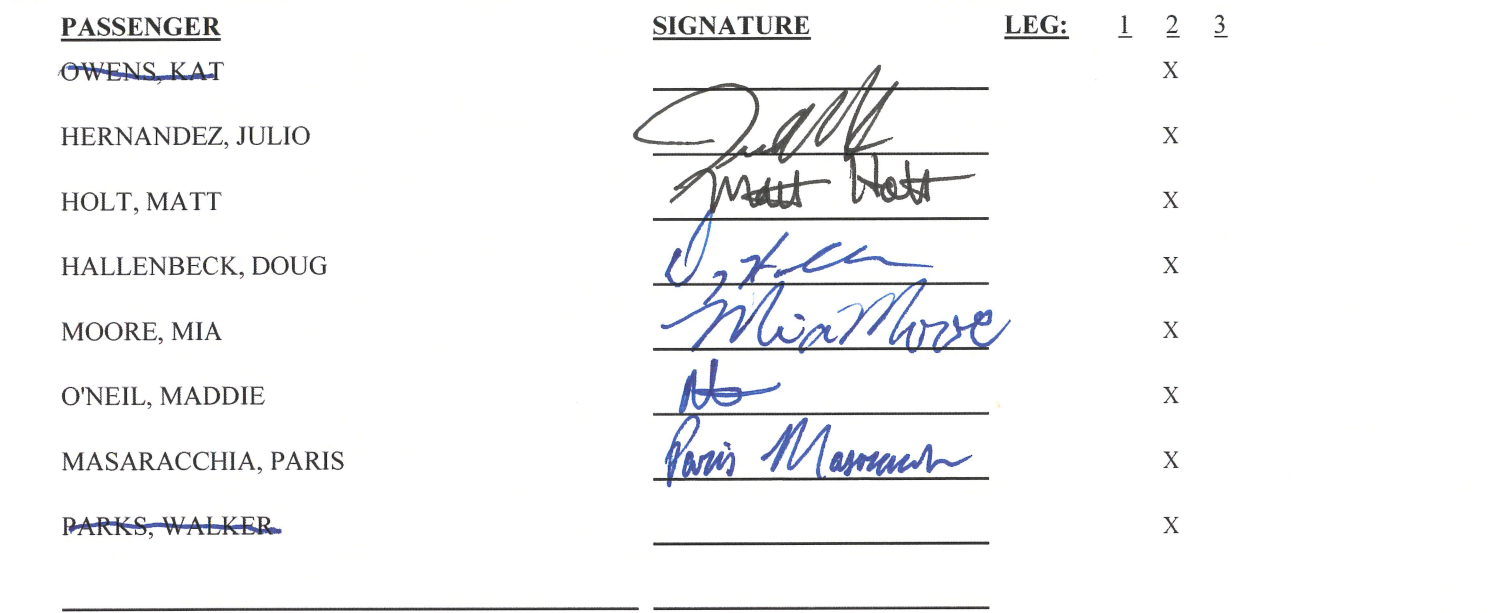 PASSENGER SIGNATURE LEG: 1 2 3
OWENS, KAT X
HERNANDEZ, JULIO X
HOLT, MATT Matt Holt X
HALLENBECK, DOUG X
MOORE, MIA Mia Moore X
O'NEIL, MADDIE X
MASARACCHIA, PARIS Paris X
PARKS, WALKER X